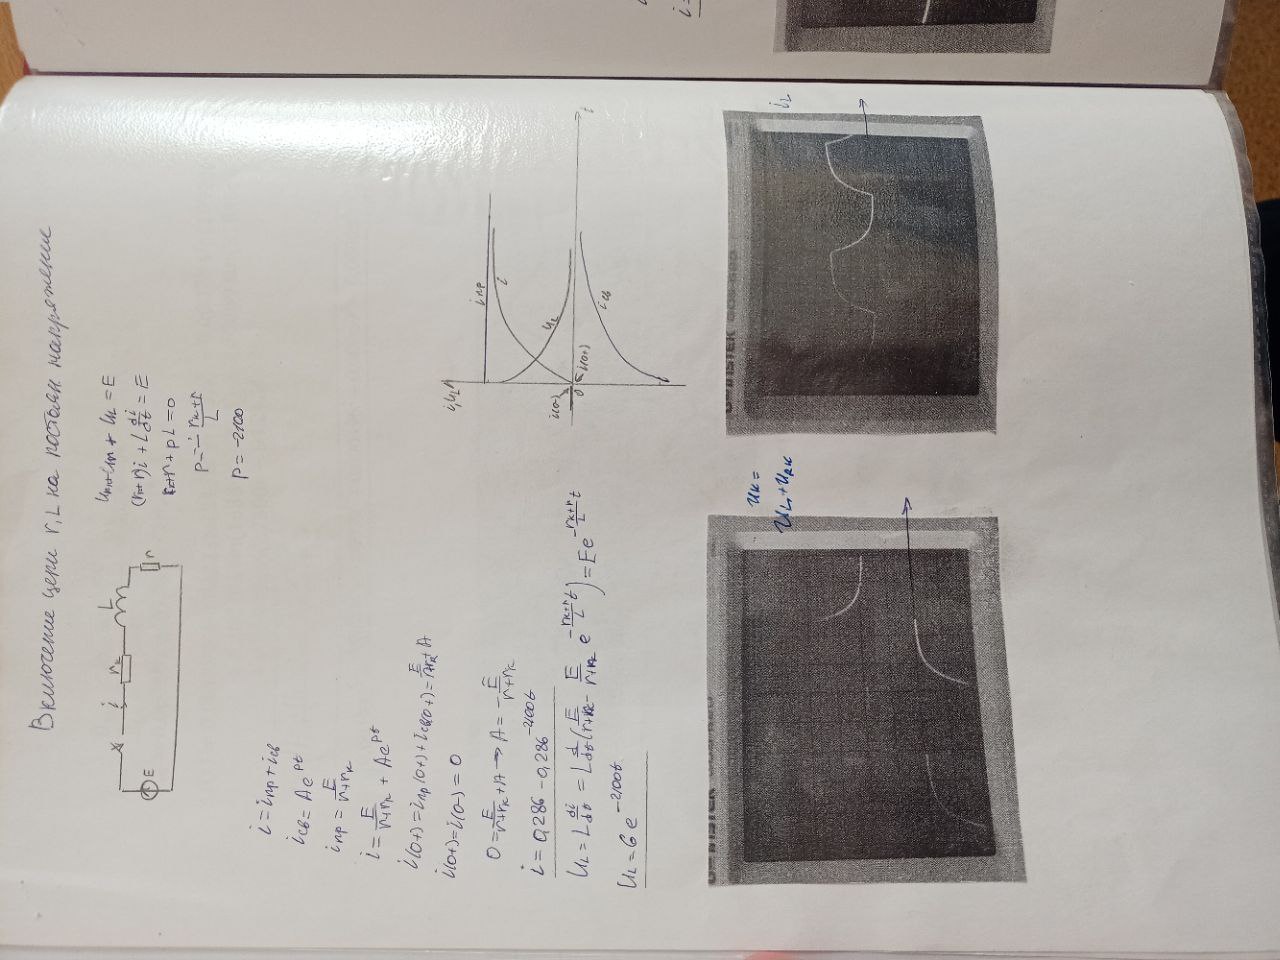 Включение цепи r, L на постоян напряжение
i
rк
L
E
r
uL = E
(rк+r)i + L di/dt = E
rк+r + pL = 0
p = - (rк+r)/L
p = -2100
i = iпр + iсв
iсв = Ae^pt
iпр = E/(r+rк)
i = E/(r+rк) + Ae^pt
i(0+) = iпр(0+) + iсв(0+) = E/(r+rк) + A
i(0+) = i(0-) = 0
0 = E/(r+rк) + A → A = - E/(r+rк)
i = 0,286 - 0,286^-2100t
UL = L di/dt = L d/dt (E/(r+rк) - E/(r+rк) e^-(rк+r)/L t) = E e^-(rк+r)/L t
UL = 6 e^-2100t
i, uL
iпр
i
uL
i(0-)
0
i(0+)
t
iсв
uк =
UL + URк
iL
i=